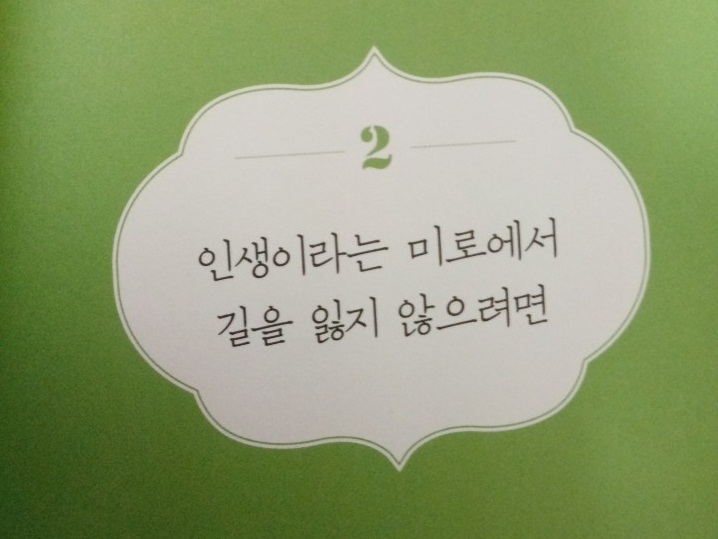 2
인생이라는 미로에서
길을 잃지 않으려면